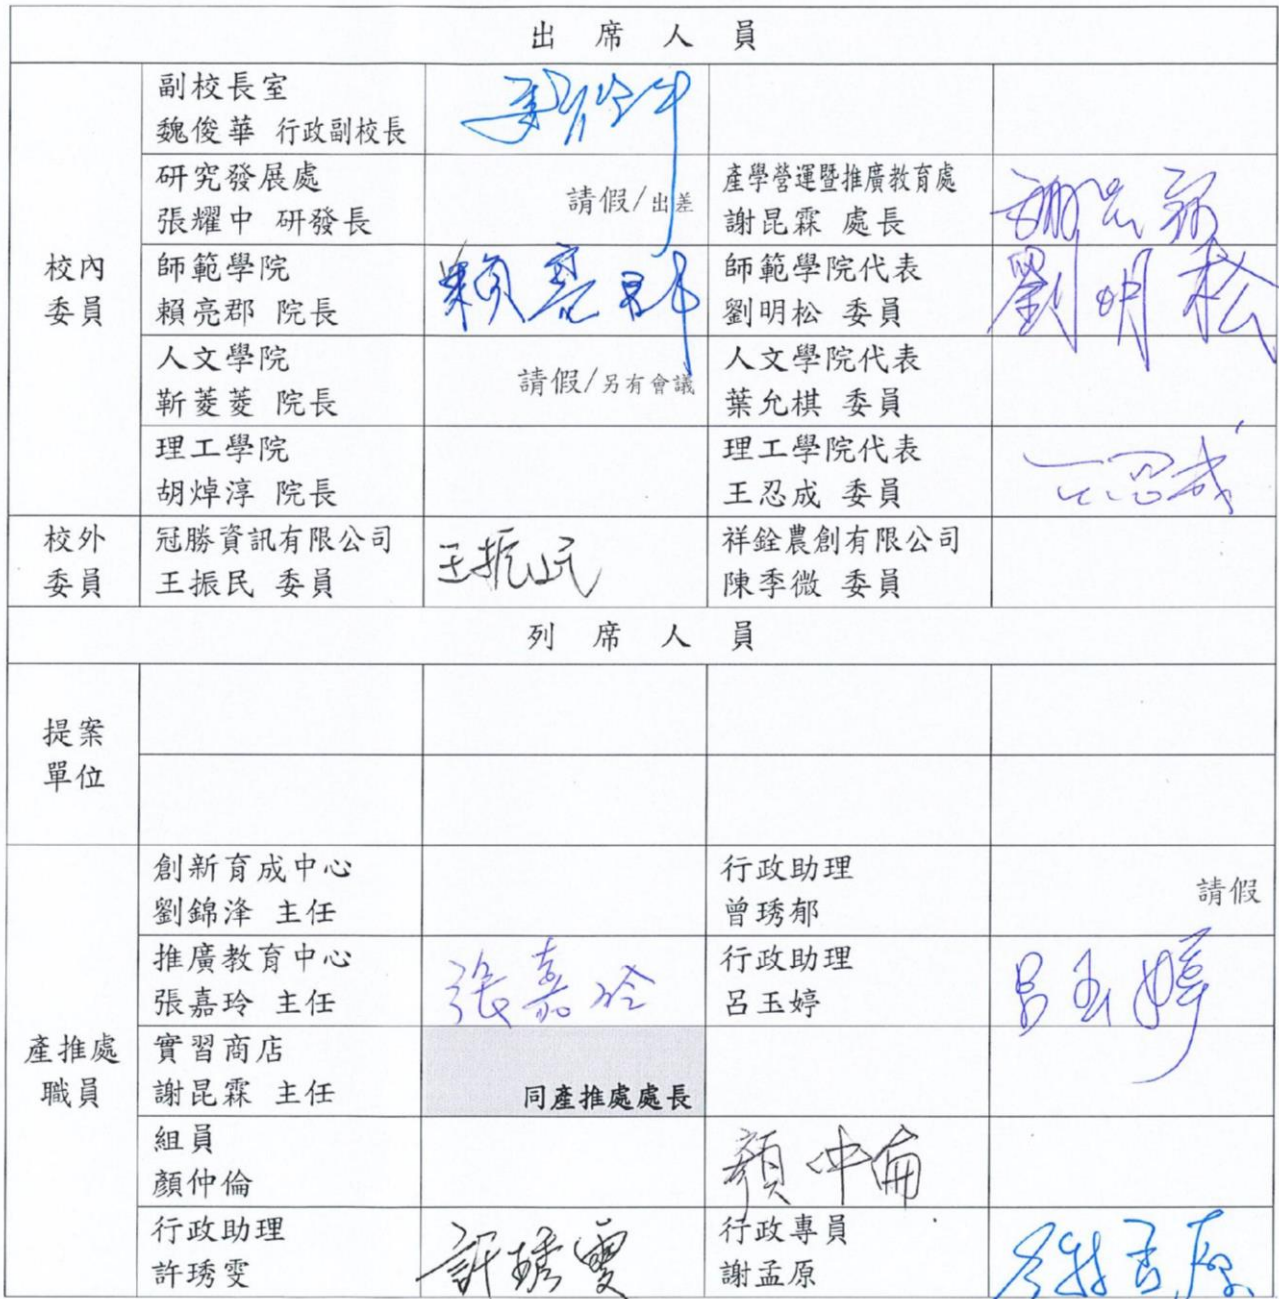 出席人員
校內
委員
副校長室
魏俊華 行政副校長
研究發展處
張耀中 研發長
請假/出差
產學營運暨推廣教育處
謝昆霖 處長
師範學院
賴亮郡 院長
賴亮郡
師範學院代表
劉明松 委員
劉明松
人文學院
靳菱菱 院長
請假/另有會議
人文學院代表
葉允棋 委員
理工學院
胡焯淳 院長
理工學院代表
王忍成 委員
王忍成
校外
委員
冠勝資訊有限公司
王振民 委員
王振民
祥銓農創有限公司
陳季微 委員
列席人員
提案
單位
產推處
職員
創新育成中心
劉錦浲 主任
行政助理
曾琇郁
請假
推廣教育中心
張嘉玲 主任
張嘉玲
行政助理
呂玉婷
呂玉婷
實習商店
謝昆霖 主任
同產推處處長
組員
顏仲倫
顏仲倫
行政助理
許琇雯
許琇雯
行政專員
謝孟原